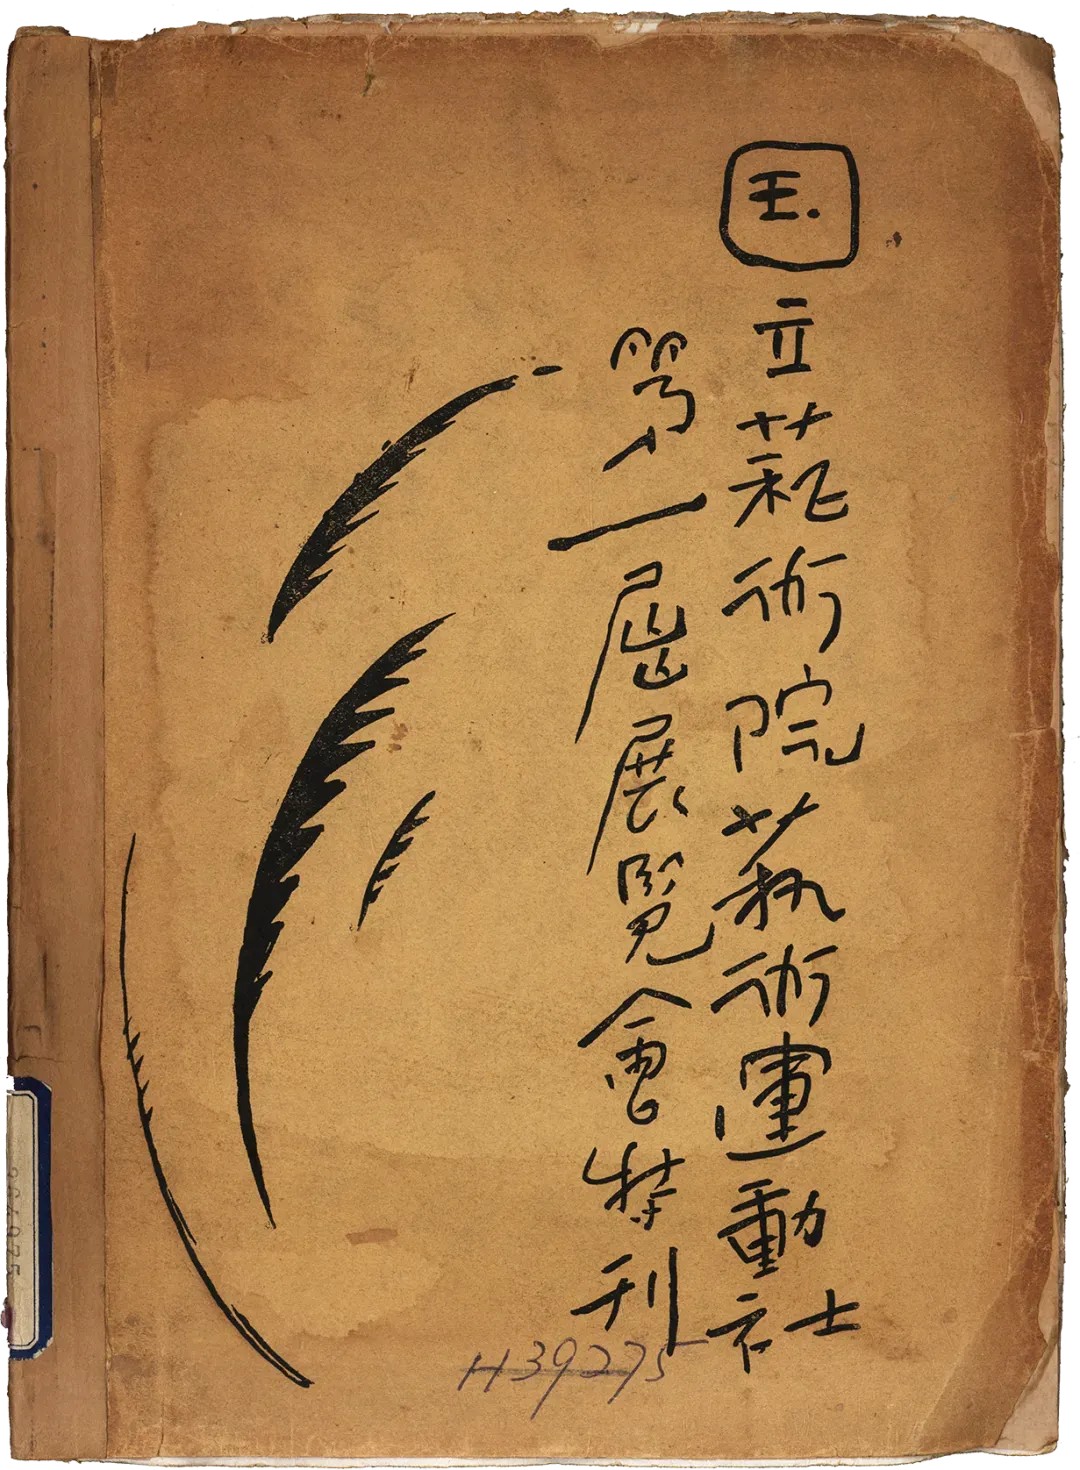 国立藝術院藝術運動社
第一屆展覽會特刊
H39275